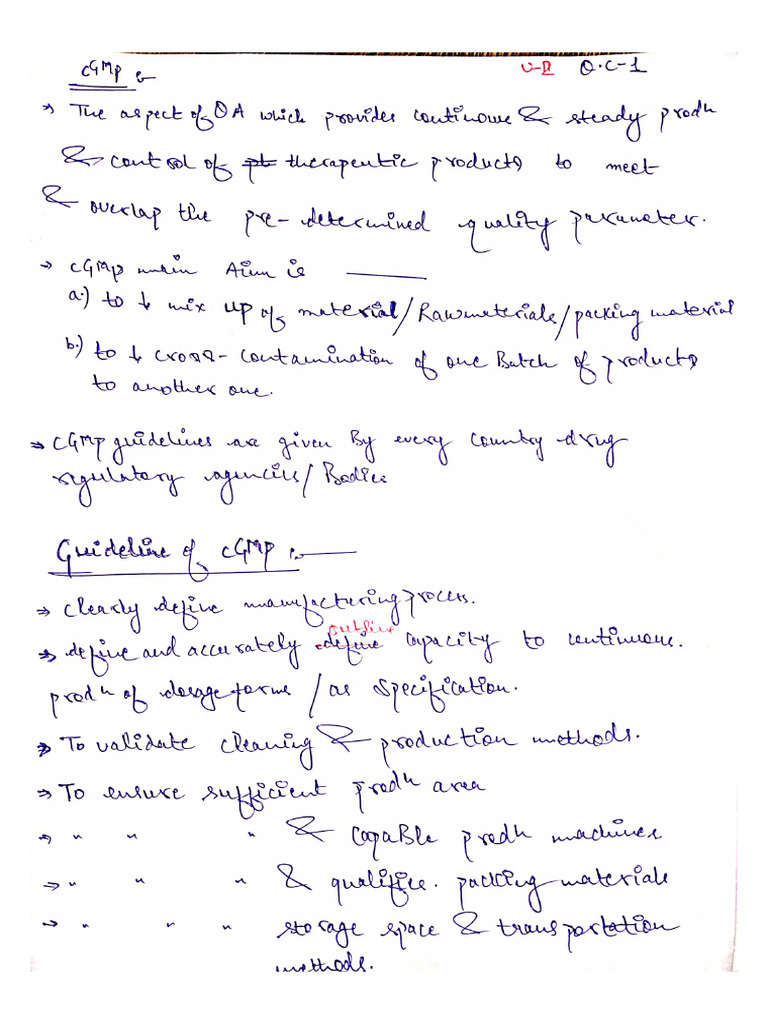 cGMP :-
U-II Q.C-1
→ The aspect of QA which provides continuous & steady prodn
& control of therapeutic products to meet
& overlap the pre-determined quality parameter.
→ cGMP main Aim is ———
a.) to ↓ mix up of material/Rawmaterials/packing material
b.) to ↓ cross-contamination of one Batch of products
to another one.
→ cGMP guidelines are given By every country drug
regulatory agencies/Bodies
Guideline of cGMP :-
→ Clearly define manufacturing process.
→ define and accurately define capacity to continuous
prodn of dosage forms / as specification.
→ To validate cleaning & production methods.
→ To ensure sufficient prodn area
→ " " " & capaBle prodn machines
→ " " " & qualifice. packing materials
→ " " " storage space & transportation
methods.